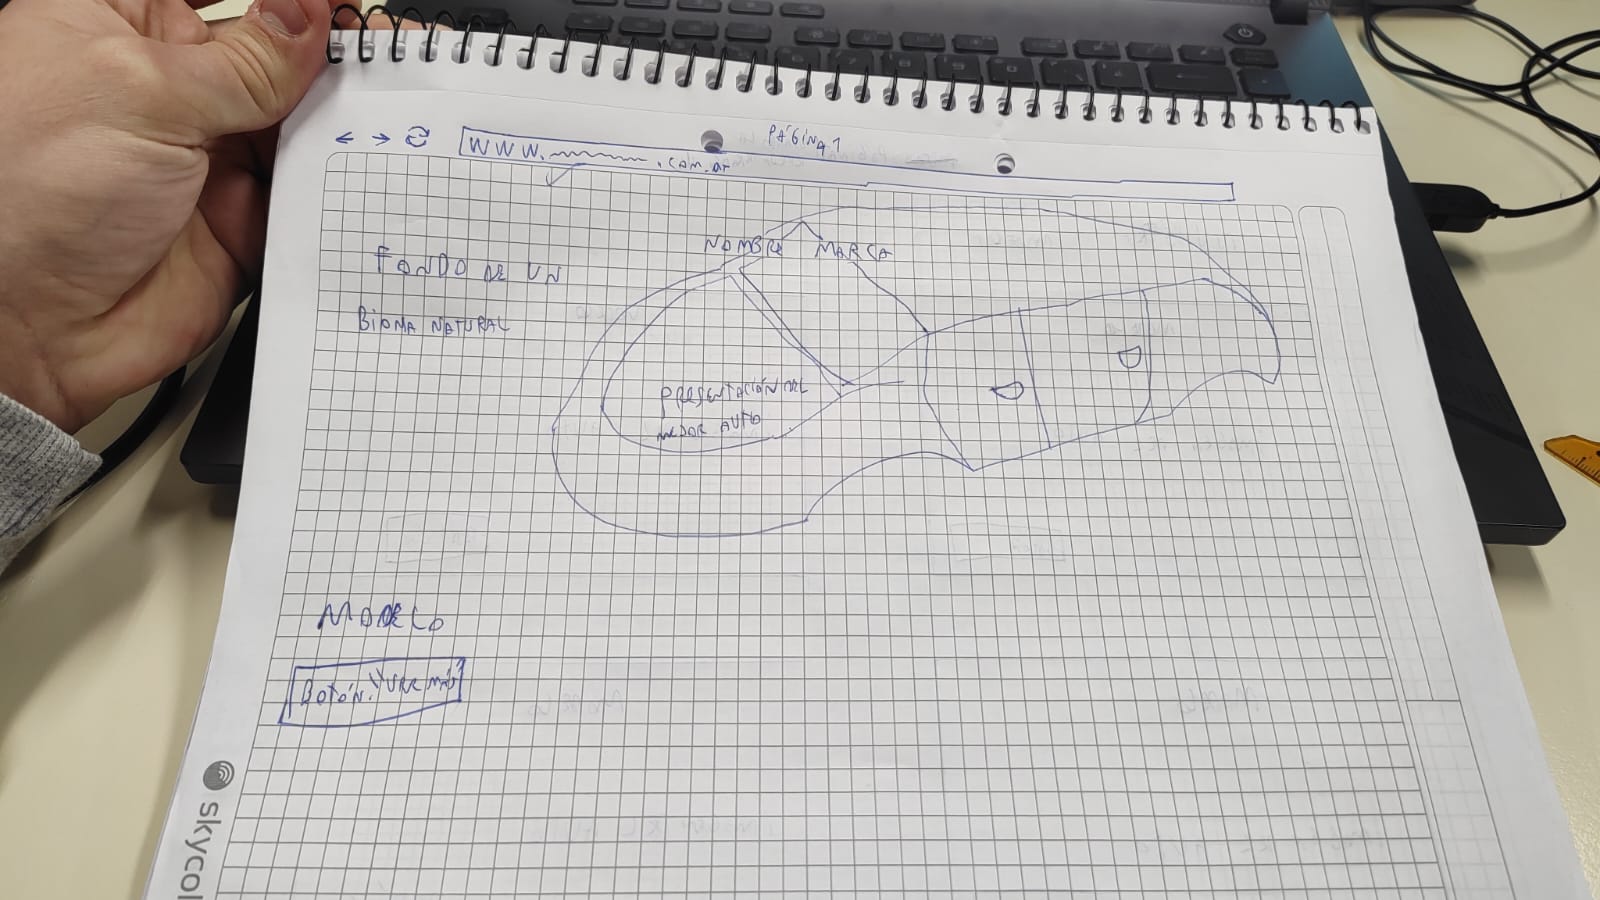 PÁGINA 1
www. .com.ar
NOMBRE MARCA
FONDO DE UN
BIOMA NATURAL
PRESENTACIÓN DEL
MEJOR AUTO
MODELO
BOTÓN: "VER MÁS"
skycol